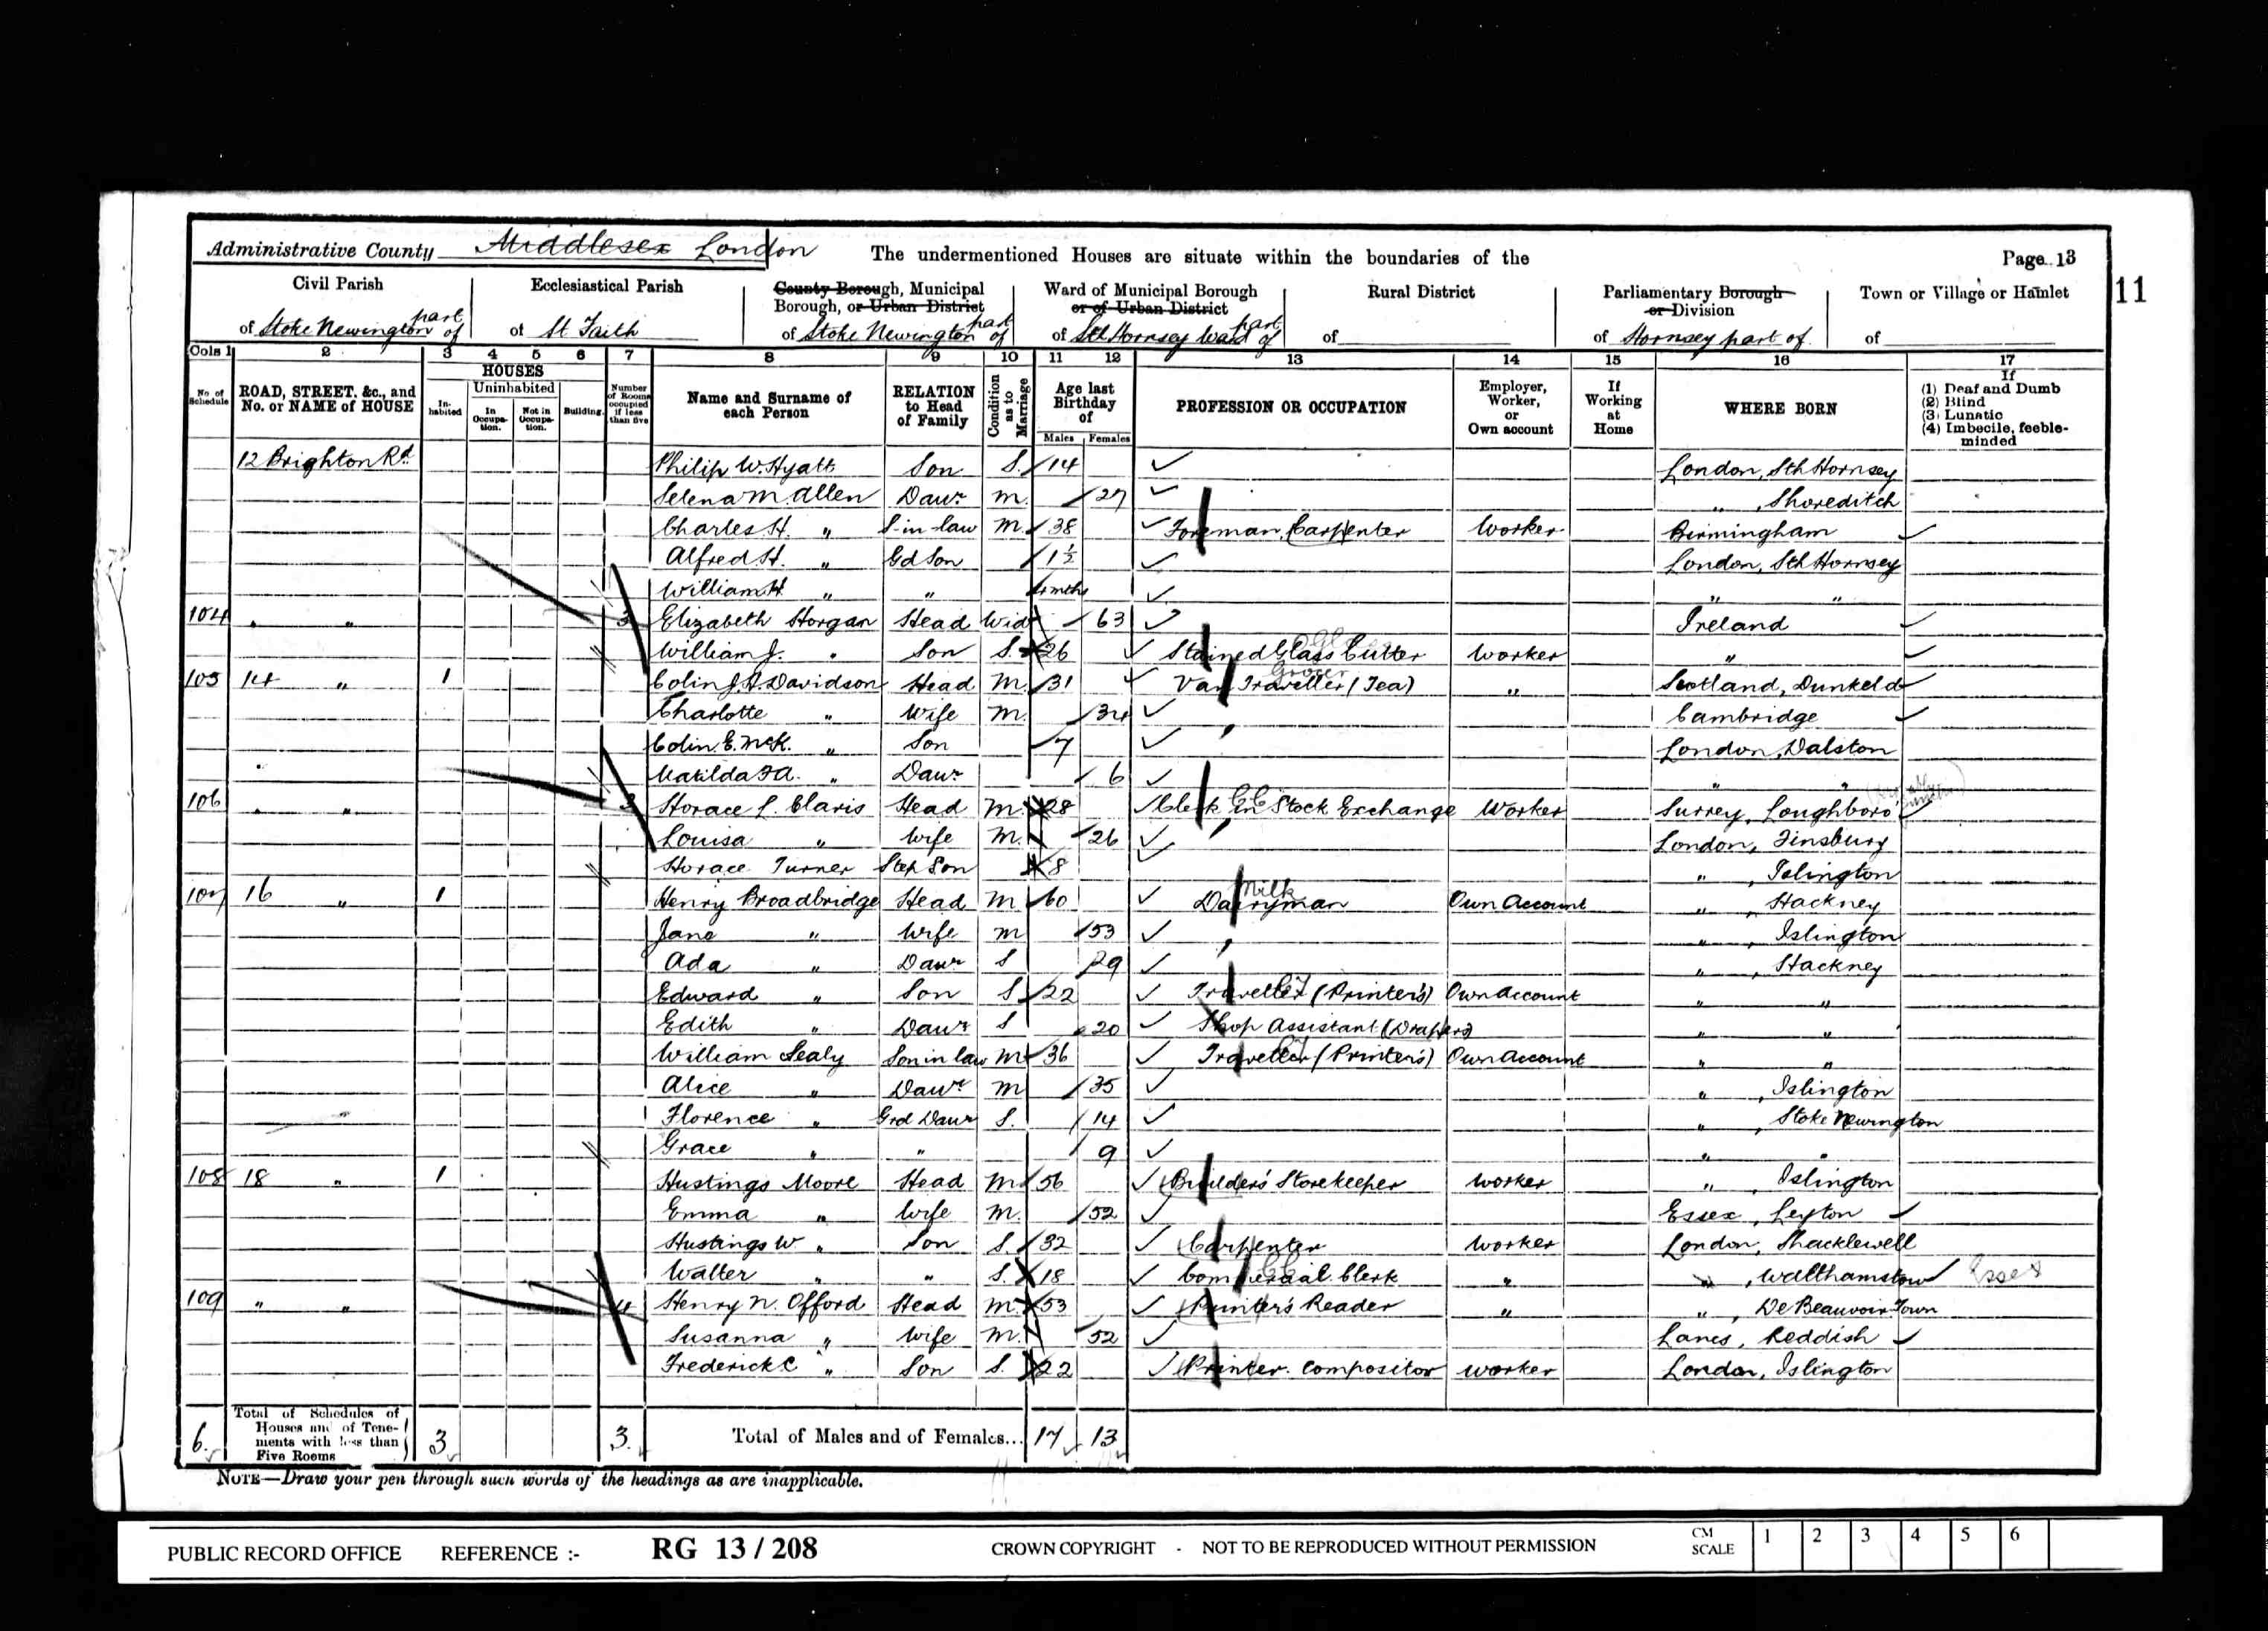 Administrative County Middlesex London The undermentioned Houses are situate within the boundaries of the Page 13
11
Civil Parish Ecclesiastical Parish County Borough, Municipal Borough, or Urban District Ward of Municipal Borough or of Urban District Rural District Parliamentary Borough or Division Town or Village or Hamlet
of Stoke Newington part of of St Faith of Stoke Newington part of of Sth Hornsey Ward part of of of Hornsey part of of
Cols 1 2 3 4 5 6 7 8 9 10 11 12 13 14 15 16 17
No. of Schedule ROAD, STREET, &c., and No. or NAME of HOUSE HOUSES Inhabited Uninhabited In Occupation. Not in Occupation. Building. Number of Rooms occupied if less than five Name and Surname of each Person RELATION to Head of Family Condition as to Marriage Age last Birthday of Males Females PROFESSION OR OCCUPATION Employer, Worker, or Own account If Working at Home WHERE BORN If (1) Deaf and Dumb (2) Blind (3) Lunatic (4) Imbecile, feeble-minded
12 Brighton Rd. Philip W. Hyatt Son S. 14 London, Sth Hornsey
Selena M. Allen Dawr. M. 27 " , Shoreditch
Charles H. " S-in-law M. 38 Foreman, Carpenter Worker Birmingham
Alfred H. " Gd Son 1½ London, Sth Hornsey
William H. " " mths " "
104 " " 3 Elizabeth Horgan Head Wid 63 Ireland
William J. " Son S. 26 Stained Glass Cutter Worker "
105 14 " 1 Colin J. A. Davidson Head M. 31 Van Traveller (Tea) Grocer " Scotland, Dunkeld
Charlotte " Wife M. 34 Cambridge
Colin E. McK. " Son 7 London, Dalston
Matilda F A. " Dawr. 6 " "
106 " " 3 Horace L. Claris Head M. 28 Clerk in Stock Exchange Worker Surrey, Loughboro'
Louisa " Wife M. 26 London, Finsbury
Horace Turner Step Son 8 " , Islington
107 16 " 1 Henry Broadbridge Head M 60 Dairyman Milk Own Account " , Hackney
Jane " Wife M 53 " , Islington
Ada " Dawr S 29 " , Hackney
Edward " Son S 22 Traveller (Printer's) Own Account " "
Edith " Dawr S 20 Shop Assistant (Drapers) " "
William Sealy Son in law M 36 Traveller (Printer's) Own Account " "
Alice " Dawr M 35 " , Islington
Florence " Grd Dawr S. 14 " , Stoke Newington
Grace " " 9 " "
108 18 " 1 Hustings Moore Head M 56 Builder's Storekeeper Worker " , Islington
Emma " Wife M. 52 Essex, Leyton
Hustings W " Son S. 32 Carpenter Worker London, Shacklewell
Walter " " S. 18 Commercial Clerk " " , Walthamstow Essex
109 " " 4 Henry N. Offord Head M. 53 Printer's Reader " " , De Beauvoir Town
Susanna " Wife M. 52 Lancs, Reddish
Frederick C " Son S. 22 Printer Compositor Worker London, Islington
6. Total of Schedules of Houses and of Tenements with less than Five Rooms 3 3. Total of Males and of Females... 17 13
NOTE—Draw your pen through such words of the headings as are inapplicable.
PUBLIC RECORD OFFICE REFERENCE :- RG 13 / 208 CROWN COPYRIGHT - NOT TO BE REPRODUCED WITHOUT PERMISSION CM SCALE 1 2 3 4 5 6